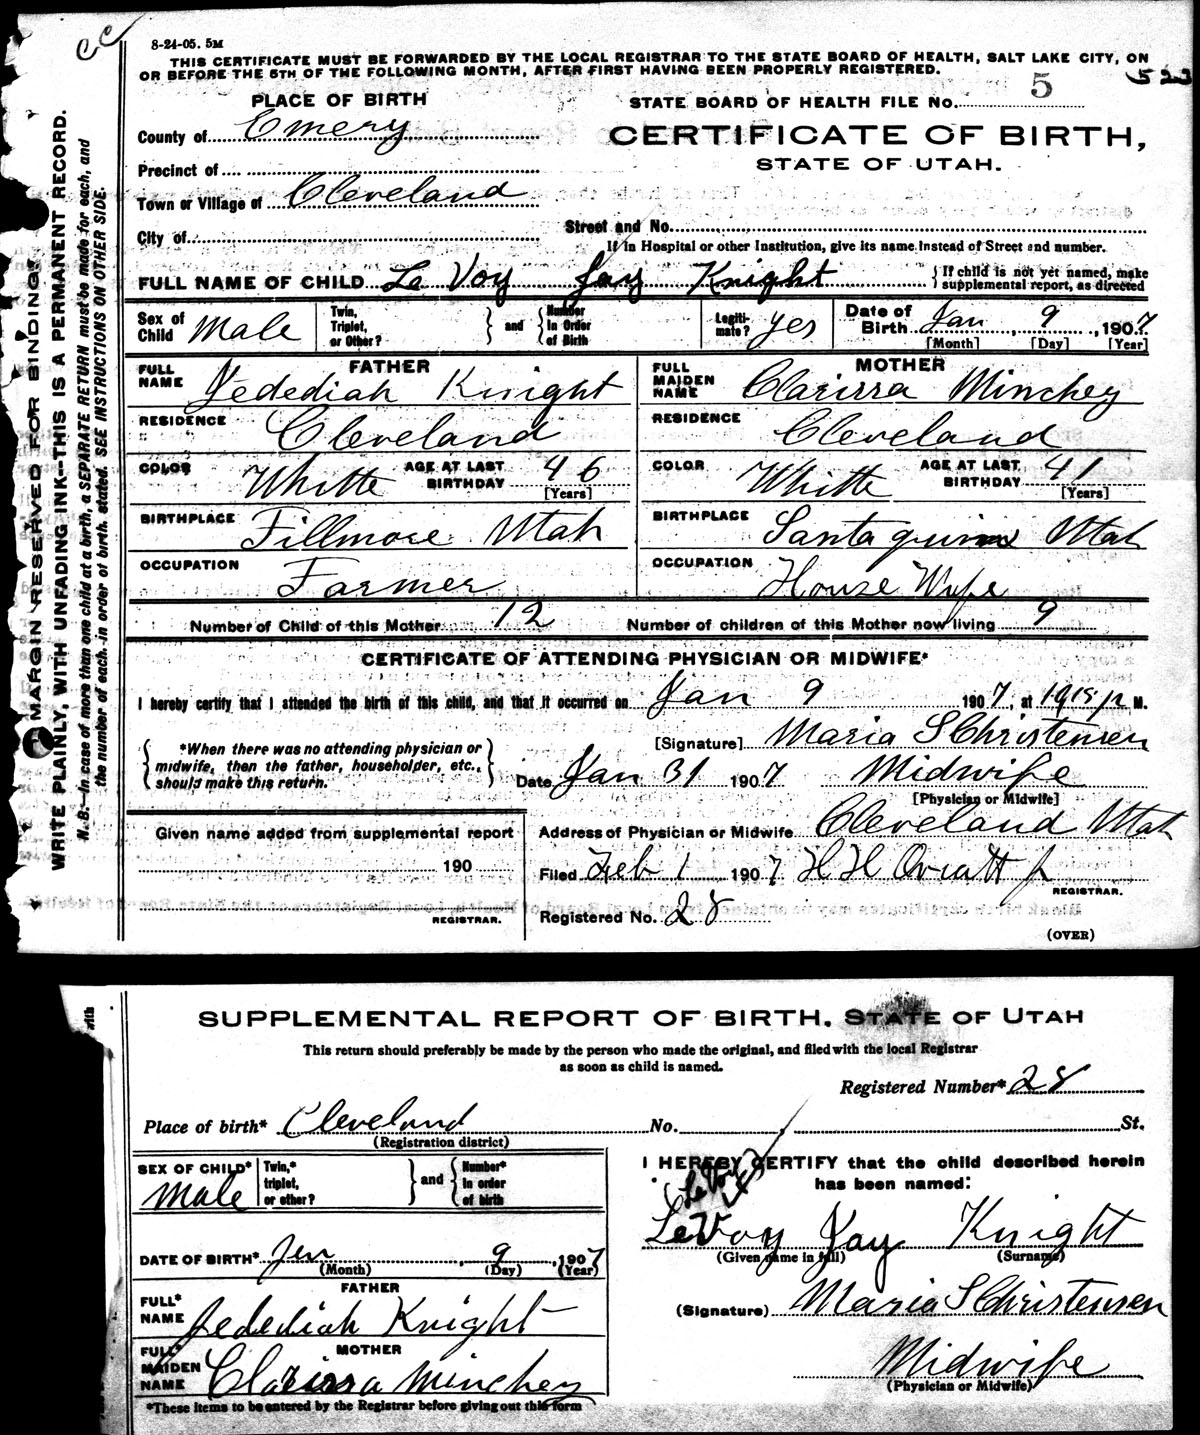 CC
8-24-05. 5M
THIS CERTIFICATE MUST BE FORWARDED BY THE LOCAL REGISTRAR TO THE STATE BOARD OF HEALTH, SALT LAKE CITY, ON
OR BEFORE THE 5TH OF THE FOLLOWING MONTH, AFTER FIRST HAVING BEEN PROPERLY REGISTERED.
523
PLACE OF BIRTH
STATE BOARD OF HEALTH FILE No. 5
County of Emery
CERTIFICATE OF BIRTH,
STATE OF UTAH.
Precinct of
Town or Village of Cleveland
Street and No.
City of
If in Hospital or other Institution, give its name instead of Street and number.
FULL NAME OF CHILD Le Voy Jay Knight } If child is not yet named, make supplemental report, as directed
Sex of Child Male Twin, Triplet, or Other? } and { Number in Order of Birth Legiti- mate? yes Date of Birth Jan 9, 1907
[Month] [Day] [Year]
FATHER
FULL NAME Jedediah Knight
RESIDENCE Cleveland
COLOR Whitte AGE AT LAST BIRTHDAY 46
[Years]
BIRTHPLACE Fillmore Utah
OCCUPATION Farmer
MOTHER
FULL MAIDEN NAME Clarissa Minchey
RESIDENCE Cleveland
COLOR Whitte AGE AT LAST BIRTHDAY 41
[Years]
BIRTHPLACE Santaquin Utah
OCCUPATION House Wife
Number of Child of this Mother 12 Number of children of this Mother now living 9
CERTIFICATE OF ATTENDING PHYSICIAN OR MIDWIFE*
I hereby certify that I attended the birth of this child, and that it occurred on Jan 9 1907, at M.
{ *When there was no attending physician or
midwife, then the father, householder, etc.,
should make this return. }
[Signature] Maria S Christensen
Date Jan 31 1907 Midwife
[Physician or Midwife]
Given name added from supplemental report
190
REGISTRAR.
Address of Physician or Midwife Cleveland Utah
Filed Feb 1 1907 H H Oviatt Jr
REGISTRAR.
Registered No. 28
(OVER)
MARGIN RESERVED FOR BINDING.
WRITE PLAINLY, WITH UNFADING INK—THIS IS A PERMANENT RECORD.
N. B.—In case of more than one child at a birth, a SEPARATE RETURN must be made for each, and
the number of each, in order of birth, stated. SEE INSTRUCTIONS ON OTHER SIDE.
with
SUPPLEMENTAL REPORT OF BIRTH, STATE OF UTAH
This return should preferably be made by the person who made the original, and filed with the local Registrar
as soon as child is named.
Registered Number* 28
Place of birth* Cleveland No. St.
(Registration district)
SEX OF CHILD* Male Twin,* triplet, or other? } and { Number* in order of birth
DATE OF BIRTH* Jan 9, 1907
(Month) (Day) (Year)
FATHER
FULL* NAME Jedediah Knight
MOTHER
FULL* MAIDEN NAME Clarissa Minchey
*These items to be entered by the Registrar before giving out this form
I HEREBY CERTIFY that the child described herein
has been named:
LeVoy Jay Knight
(Given name in full) (Surname)
(Signature) Maria S Christensen
Midwife
(Physician or Midwife)